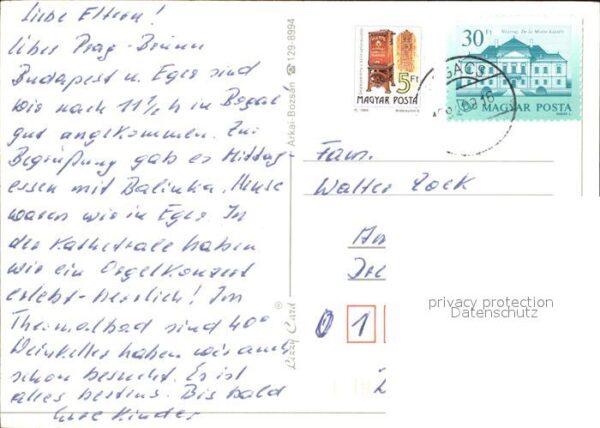 Liebe Eltern!
Über Prag-Brünn
Budapest u. Eger sind
wir nach 11½ h in Bogács
gut angekommen. Zur
Begrüßung gab es Mittag-
essen mit Balinka. Heute
waren wir in Eger. In
der Kathetrale haben
wir ein Orgelkonzert
erlebt-herrlich! Im
Thermalbad sind 40°
Weinkeller haben wir auch
schon besucht. Es ist
alles bestens. Bis bald
Eure Kinder
Árkai-Bozsán ☎ 129-8994
Lizzy Card ®
5 Ft
MAGYAR POSTA
30 Ft
MAGYAR POSTA
GÁCS
Fam.
Walter Zock
An
Dre
0 1
privacy protection
Datenschutz